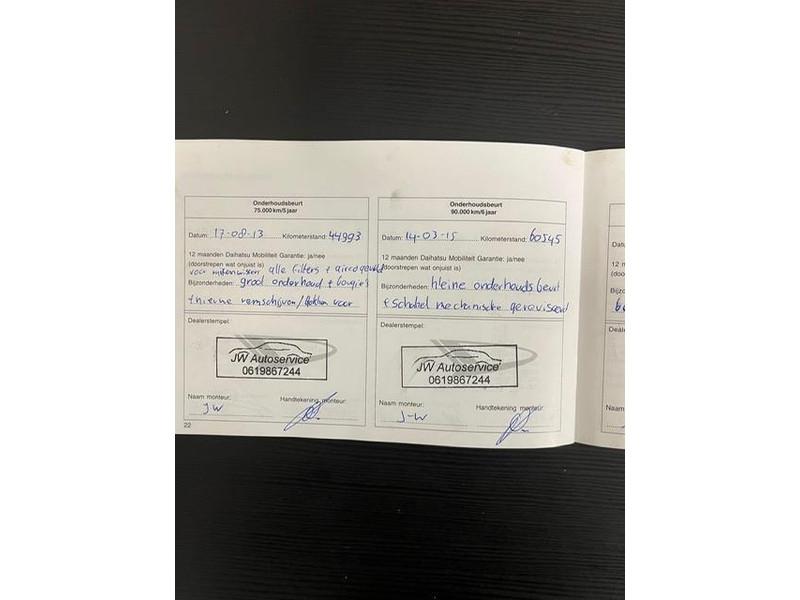 Onderhoudsbeurt
75.000 km/5 jaar
Datum: 17-08-13 Kilometerstand: 44993
12 maanden Daihatsu Mobiliteit Garantie: ja/nee
(doorstrepen wat onjuist is)
alle filters + airco
Bijzonderheden: groot onderhoud + bougies
+ nieuwe remschijven/ voor
Dealerstempel:
JW Autoservice
0619867244
Naam monteur: Handtekening monteur:
JW
22
Onderhoudsbeurt
90.000 km/6 jaar
Datum: 14-03-15 Kilometerstand: 60545
12 maanden Daihatsu Mobiliteit Garantie: ja/nee
(doorstrepen wat onjuist is)
Bijzonderheden: kleine onderhoudsbeurt
+ mechanische gereviseerd
Dealerstempel:
JW Autoservice
0619867244
Naam monteur: Handtekening monteur:
J-W
Datum:
12 m
(door
Bijzo
Deale
Naam